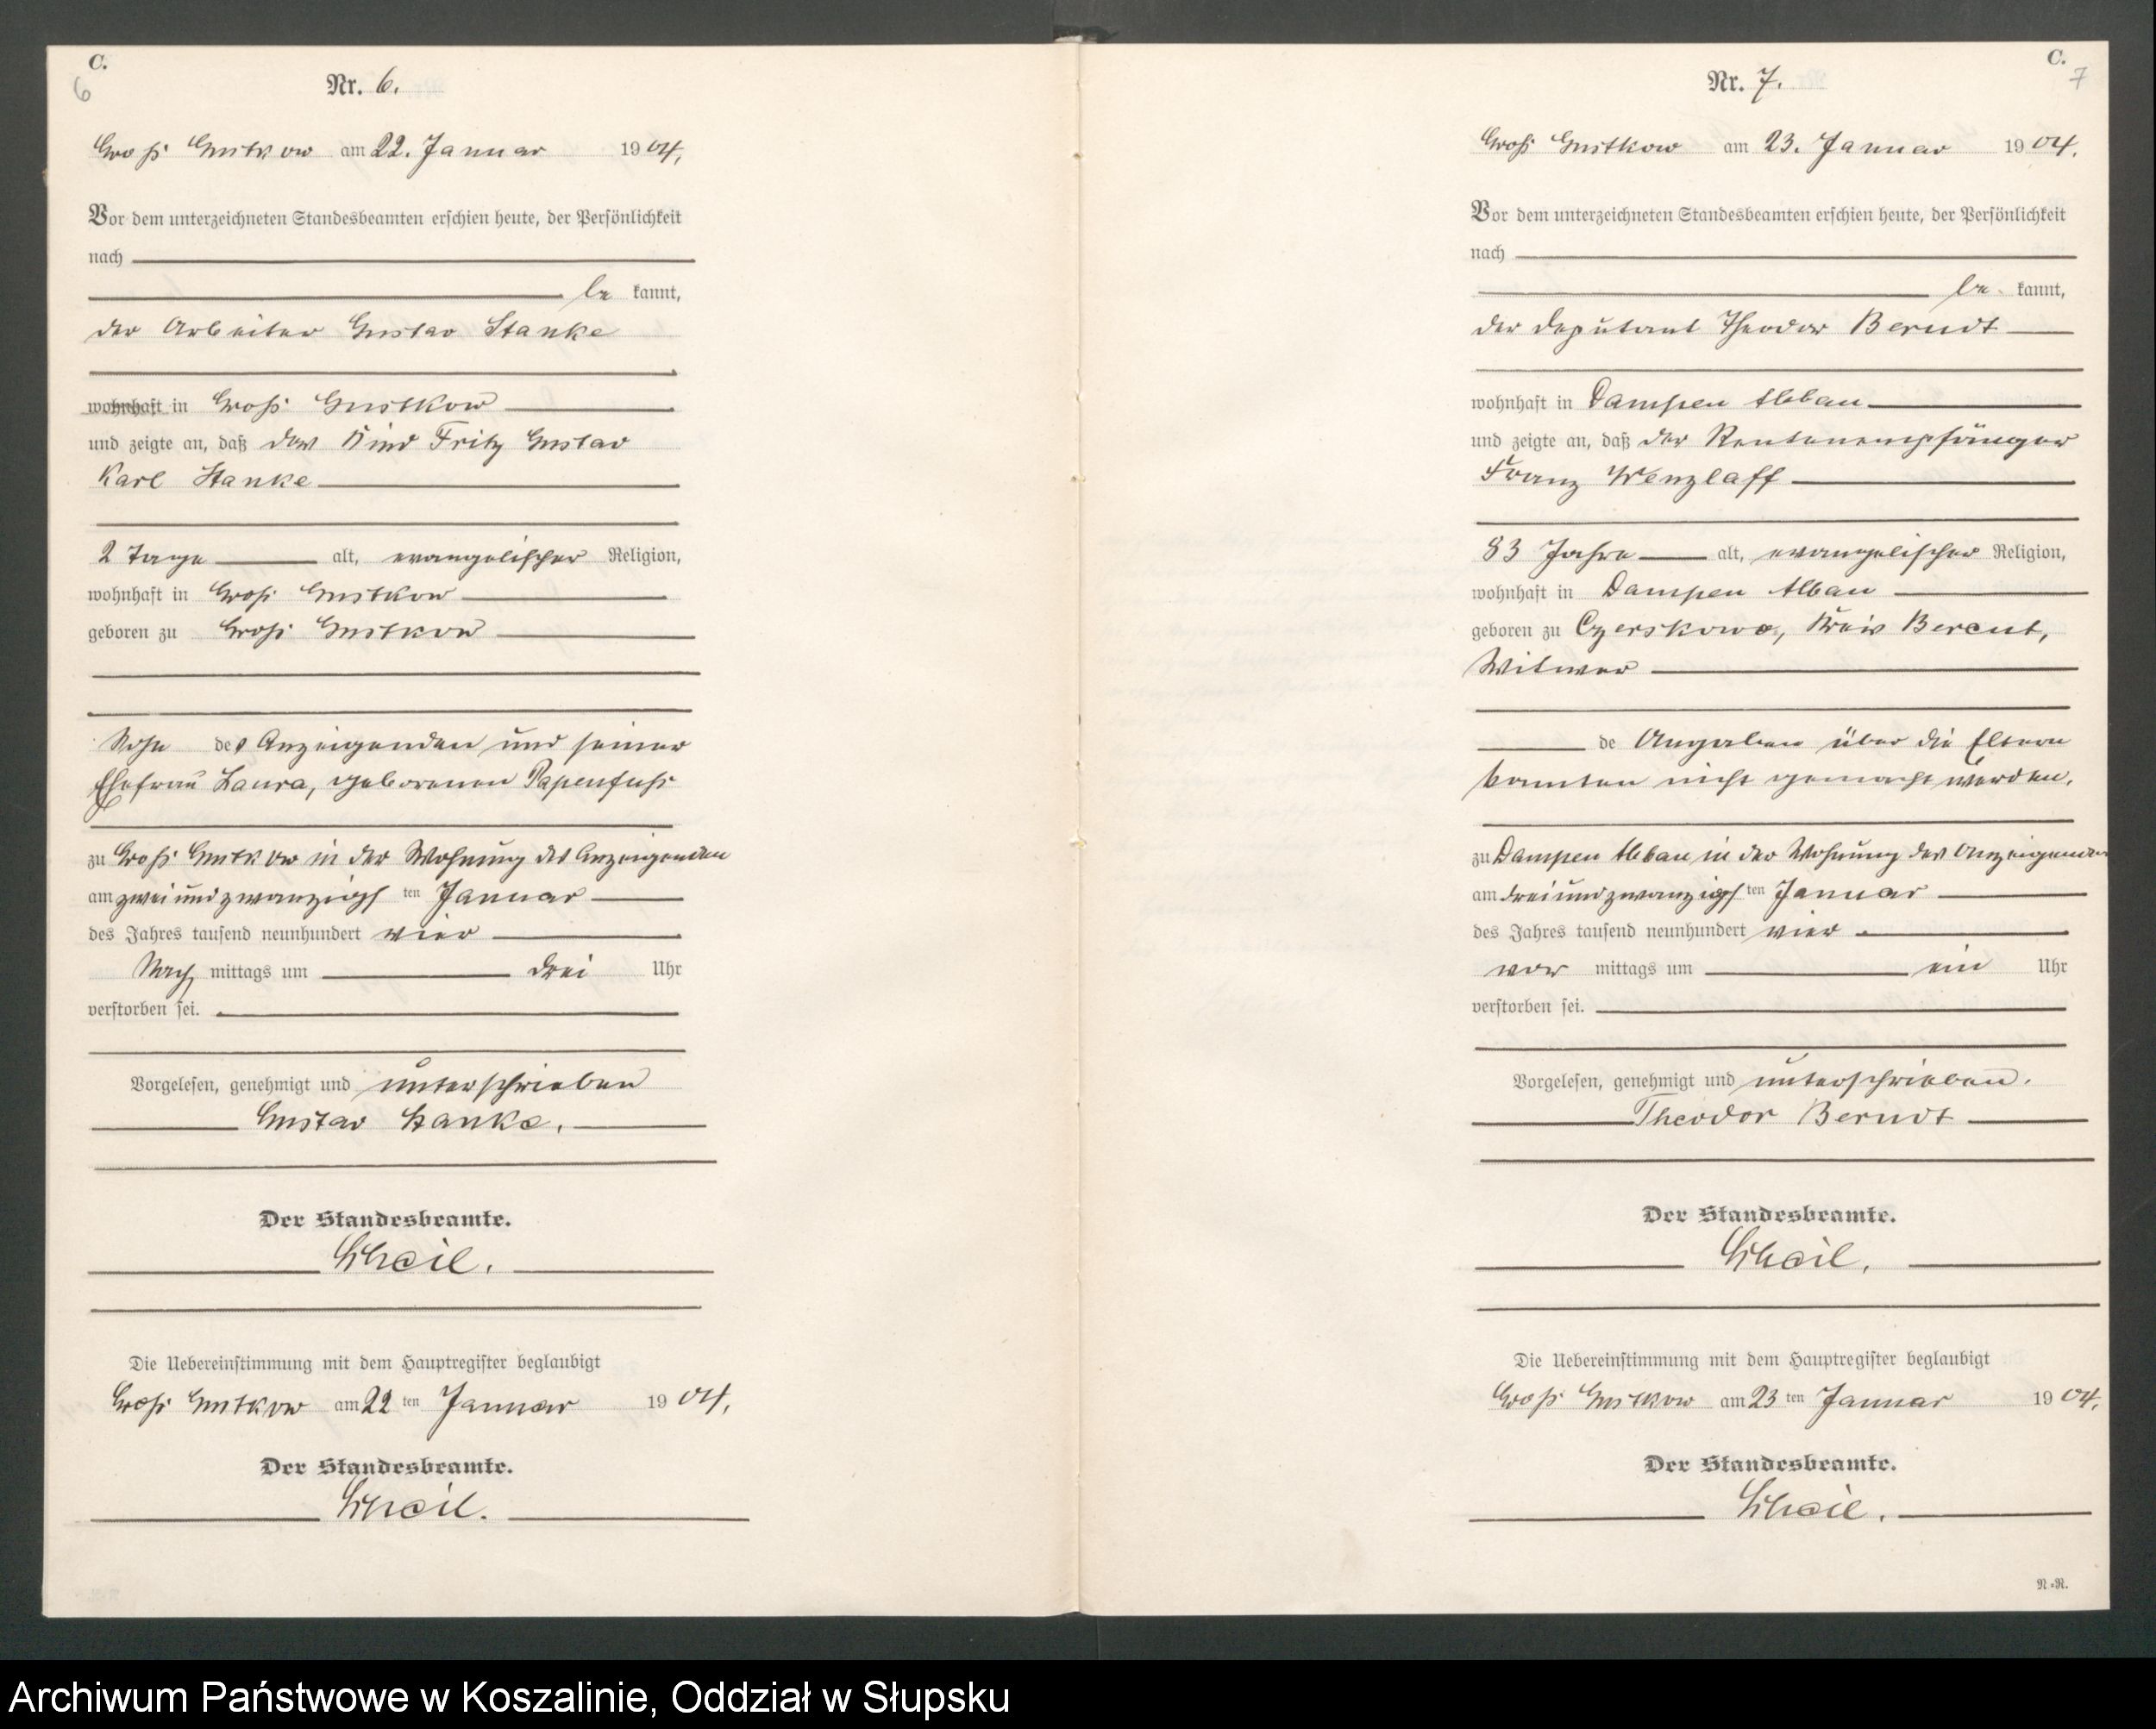 C.
6
Nr. 6.
Groß Gustkow am 22. Januar 1904.
Vor dem unterzeichneten Standesbeamten erschien heute, der Persönlichkeit
nach
be kannt,
der Arbeiter Gustav Stanke
wohnhaft in Groß Gustkow
und zeigte an, daß das Kind Fritz Gustav
Karl Stanke
2 Tage alt, evangelischer Religion,
wohnhaft in Groß Gustkow
geboren zu Groß Gustkow
Sohn des Anzeigenden und seiner
Ehefrau Laura, geborenen Papenfuß
zu Groß Gustkow in der Wohnung des Anzeigenden
am zweiundzwanzigsten Januar
des Jahres tausend neunhundert vier
Nach mittags um drei Uhr
verstorben sei.
Vorgelesen, genehmigt und unterschrieben
Gustav Stanke.
Der Standesbeamte.
Die Uebereinstimmung mit dem Hauptregister beglaubigt
Groß Gustkow am 22 ten Januar 1904.
Der Standesbeamte.
C.
7
Nr. 7.
Groß Gustkow am 23. Januar 1904.
Vor dem unterzeichneten Standesbeamten erschien heute, der Persönlichkeit
nach
be kannt,
der Deputant Theodor Berndt
wohnhaft in Dampen Abbau
und zeigte an, daß der Rentenempfänger
Franz Wenzlaff
83 Jahre alt, evangelischer Religion,
wohnhaft in Dampen Abbau
geboren zu Czerskowo, Kreis Berent,
Witwer
de Angaben über die Eltern
konnten nicht gemacht werden.
zu Dampen Abbau in der Wohnung des Anzeigenden
am dreiundzwanzigsten Januar
des Jahres tausend neunhundert vier
vor mittags um ein Uhr
verstorben sei.
Vorgelesen, genehmigt und unterschrieben.
Theodor Berndt
Der Standesbeamte.
Die Uebereinstimmung mit dem Hauptregister beglaubigt
Groß Gustkow am 23 ten Januar 1904.
Der Standesbeamte.
N.-R.
Archiwum Państwowe w Koszalinie, Oddział w Słupsku